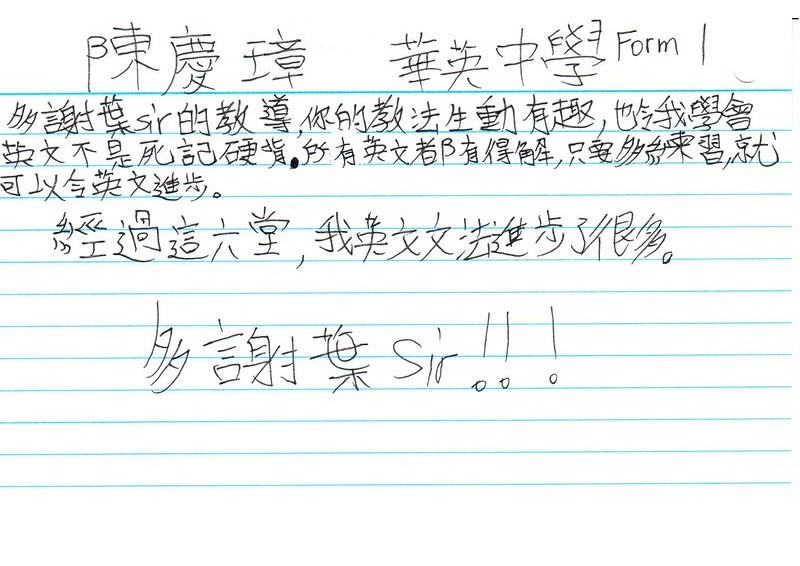 陳慶璋 華英中學 Form 1
多謝葉sir的教導,你的教法生動有趣,也令我學會
英文不是死記硬背。所有英文都有得解,只要多多練習,就
可以令英文進步。
經過這六堂,我英文文法進步了很多。
多謝葉Sir!!!